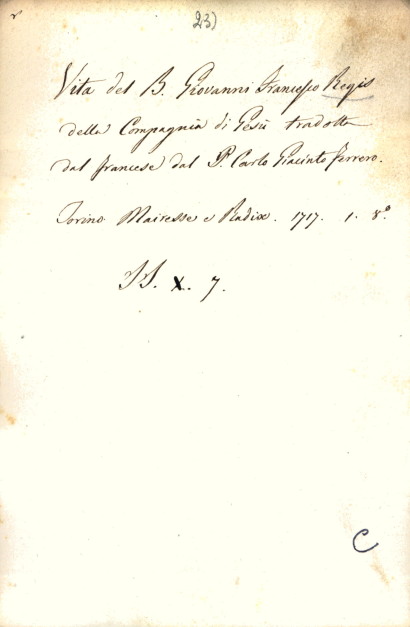 23)
Vita del B. Giovanni Francesco Regis
della Compagnia di Gesù tradotta
dal francese dal P. Carlo Giacinto Ferrero.
Torino Mairesse e Radix. 1717. 1. 8.°
X. 7.
C